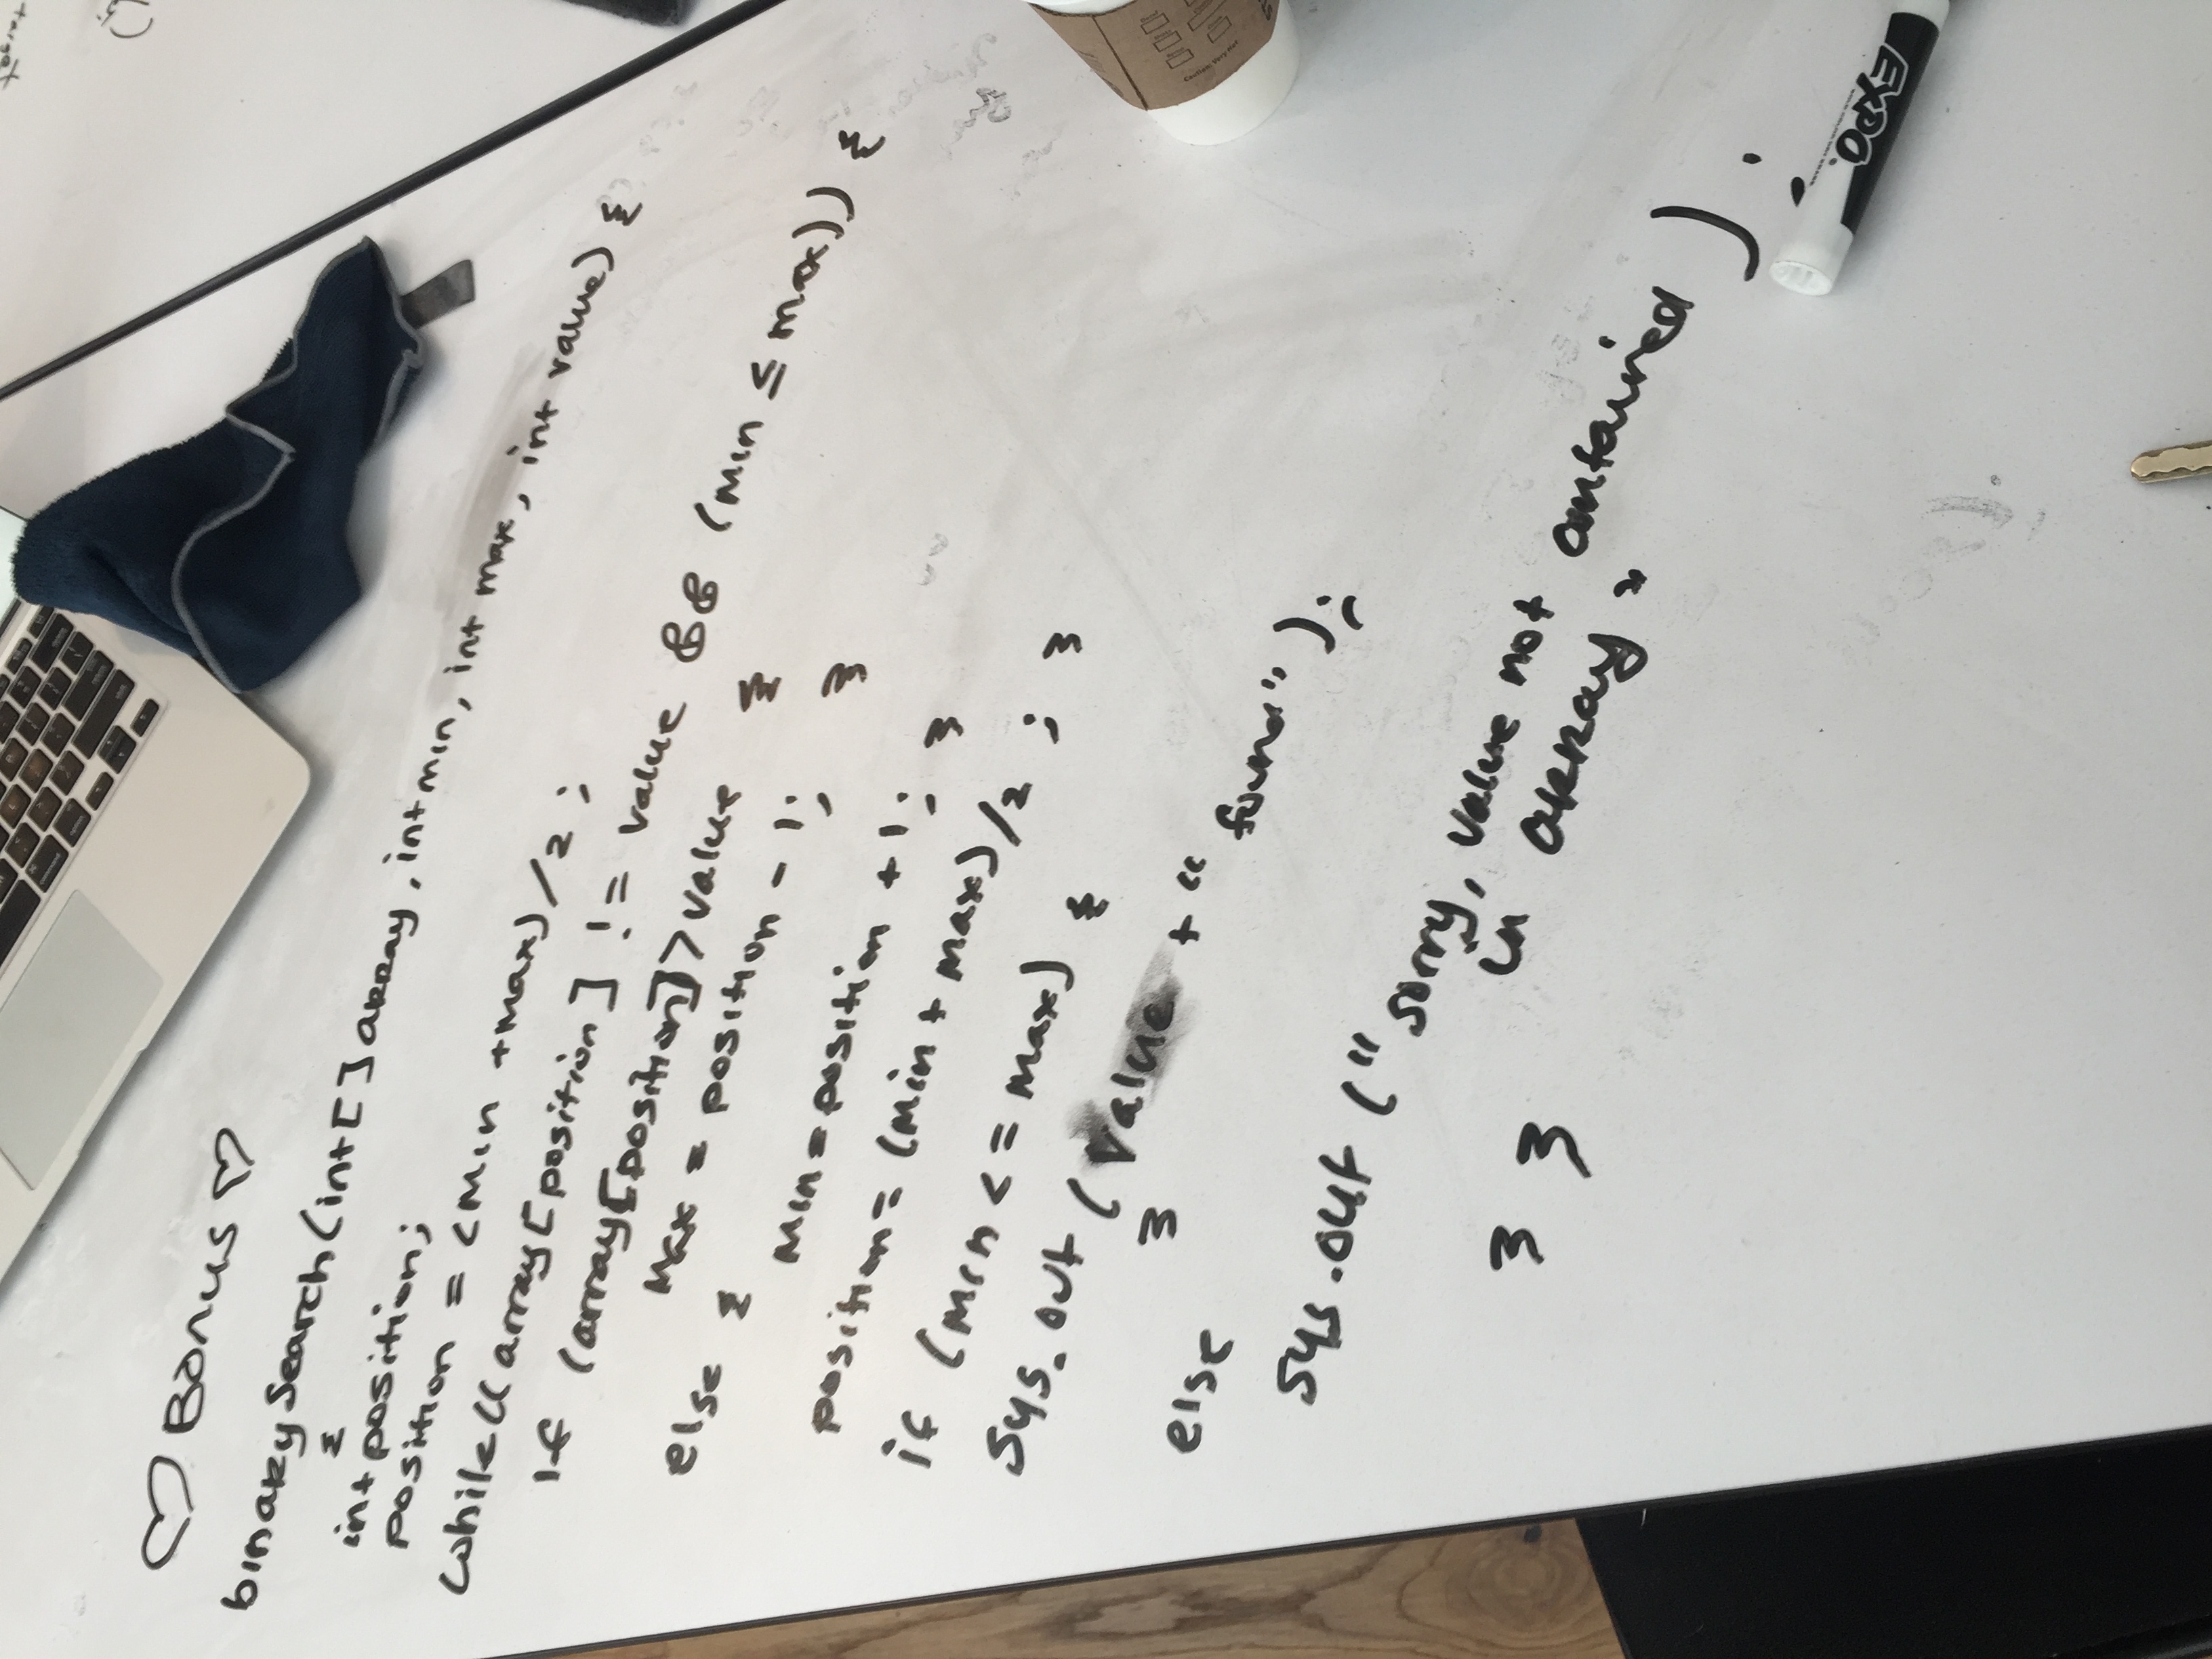 ♡ Bonus ♡
binarySearch(int[] array, int min, int max, int value) {
{
int position;
position = (min + max) / 2 ;
while((array[position] != value && (min ≤ max)) {
if (array[position]] > value {
max = position - 1; }
else {
min = position + 1; }
position = (min + max) / 2 ; }
if (min <= max) {
sys.out ( value + "found" );
}
else
sys.out ("sorry, value not contained
in array"
);
} }
EXPO.